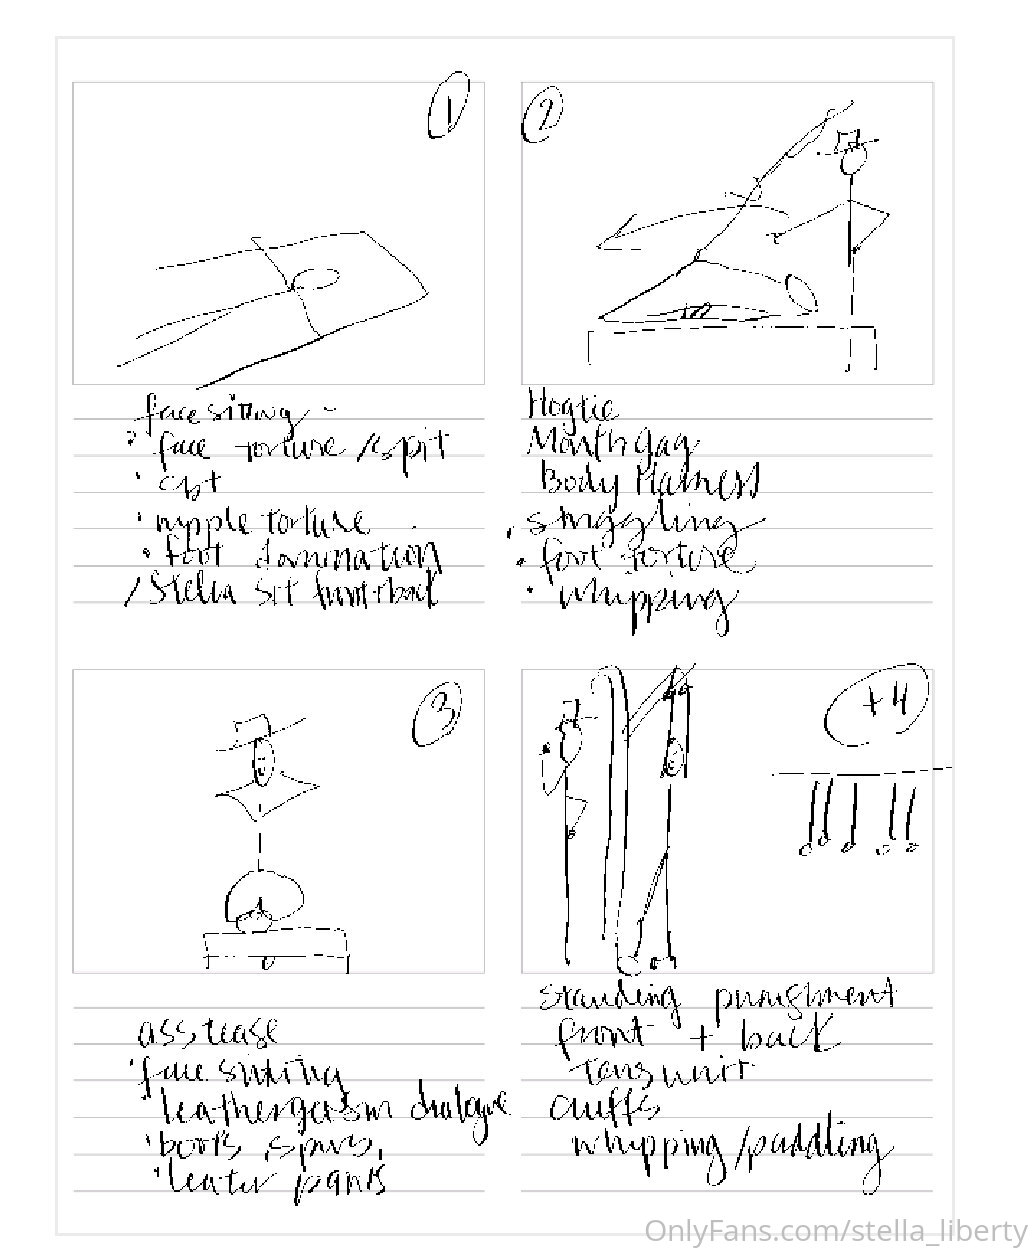 1
face sitting -
· face torture / spit
· cbt
· nipple torture
· foot domination
/ Stella sit front + back
2
Hogtie
Mouth gag
Body Harness
· struggling
· foot torture
· whipping
3
ass tease
· face sitting
leathergasm dialogue
· boots, spurs,
· leater pants
+4
standing punishment
front + back
Tens unit
cuffs
whipping / paddling
OnlyFans.com/stella_liberty